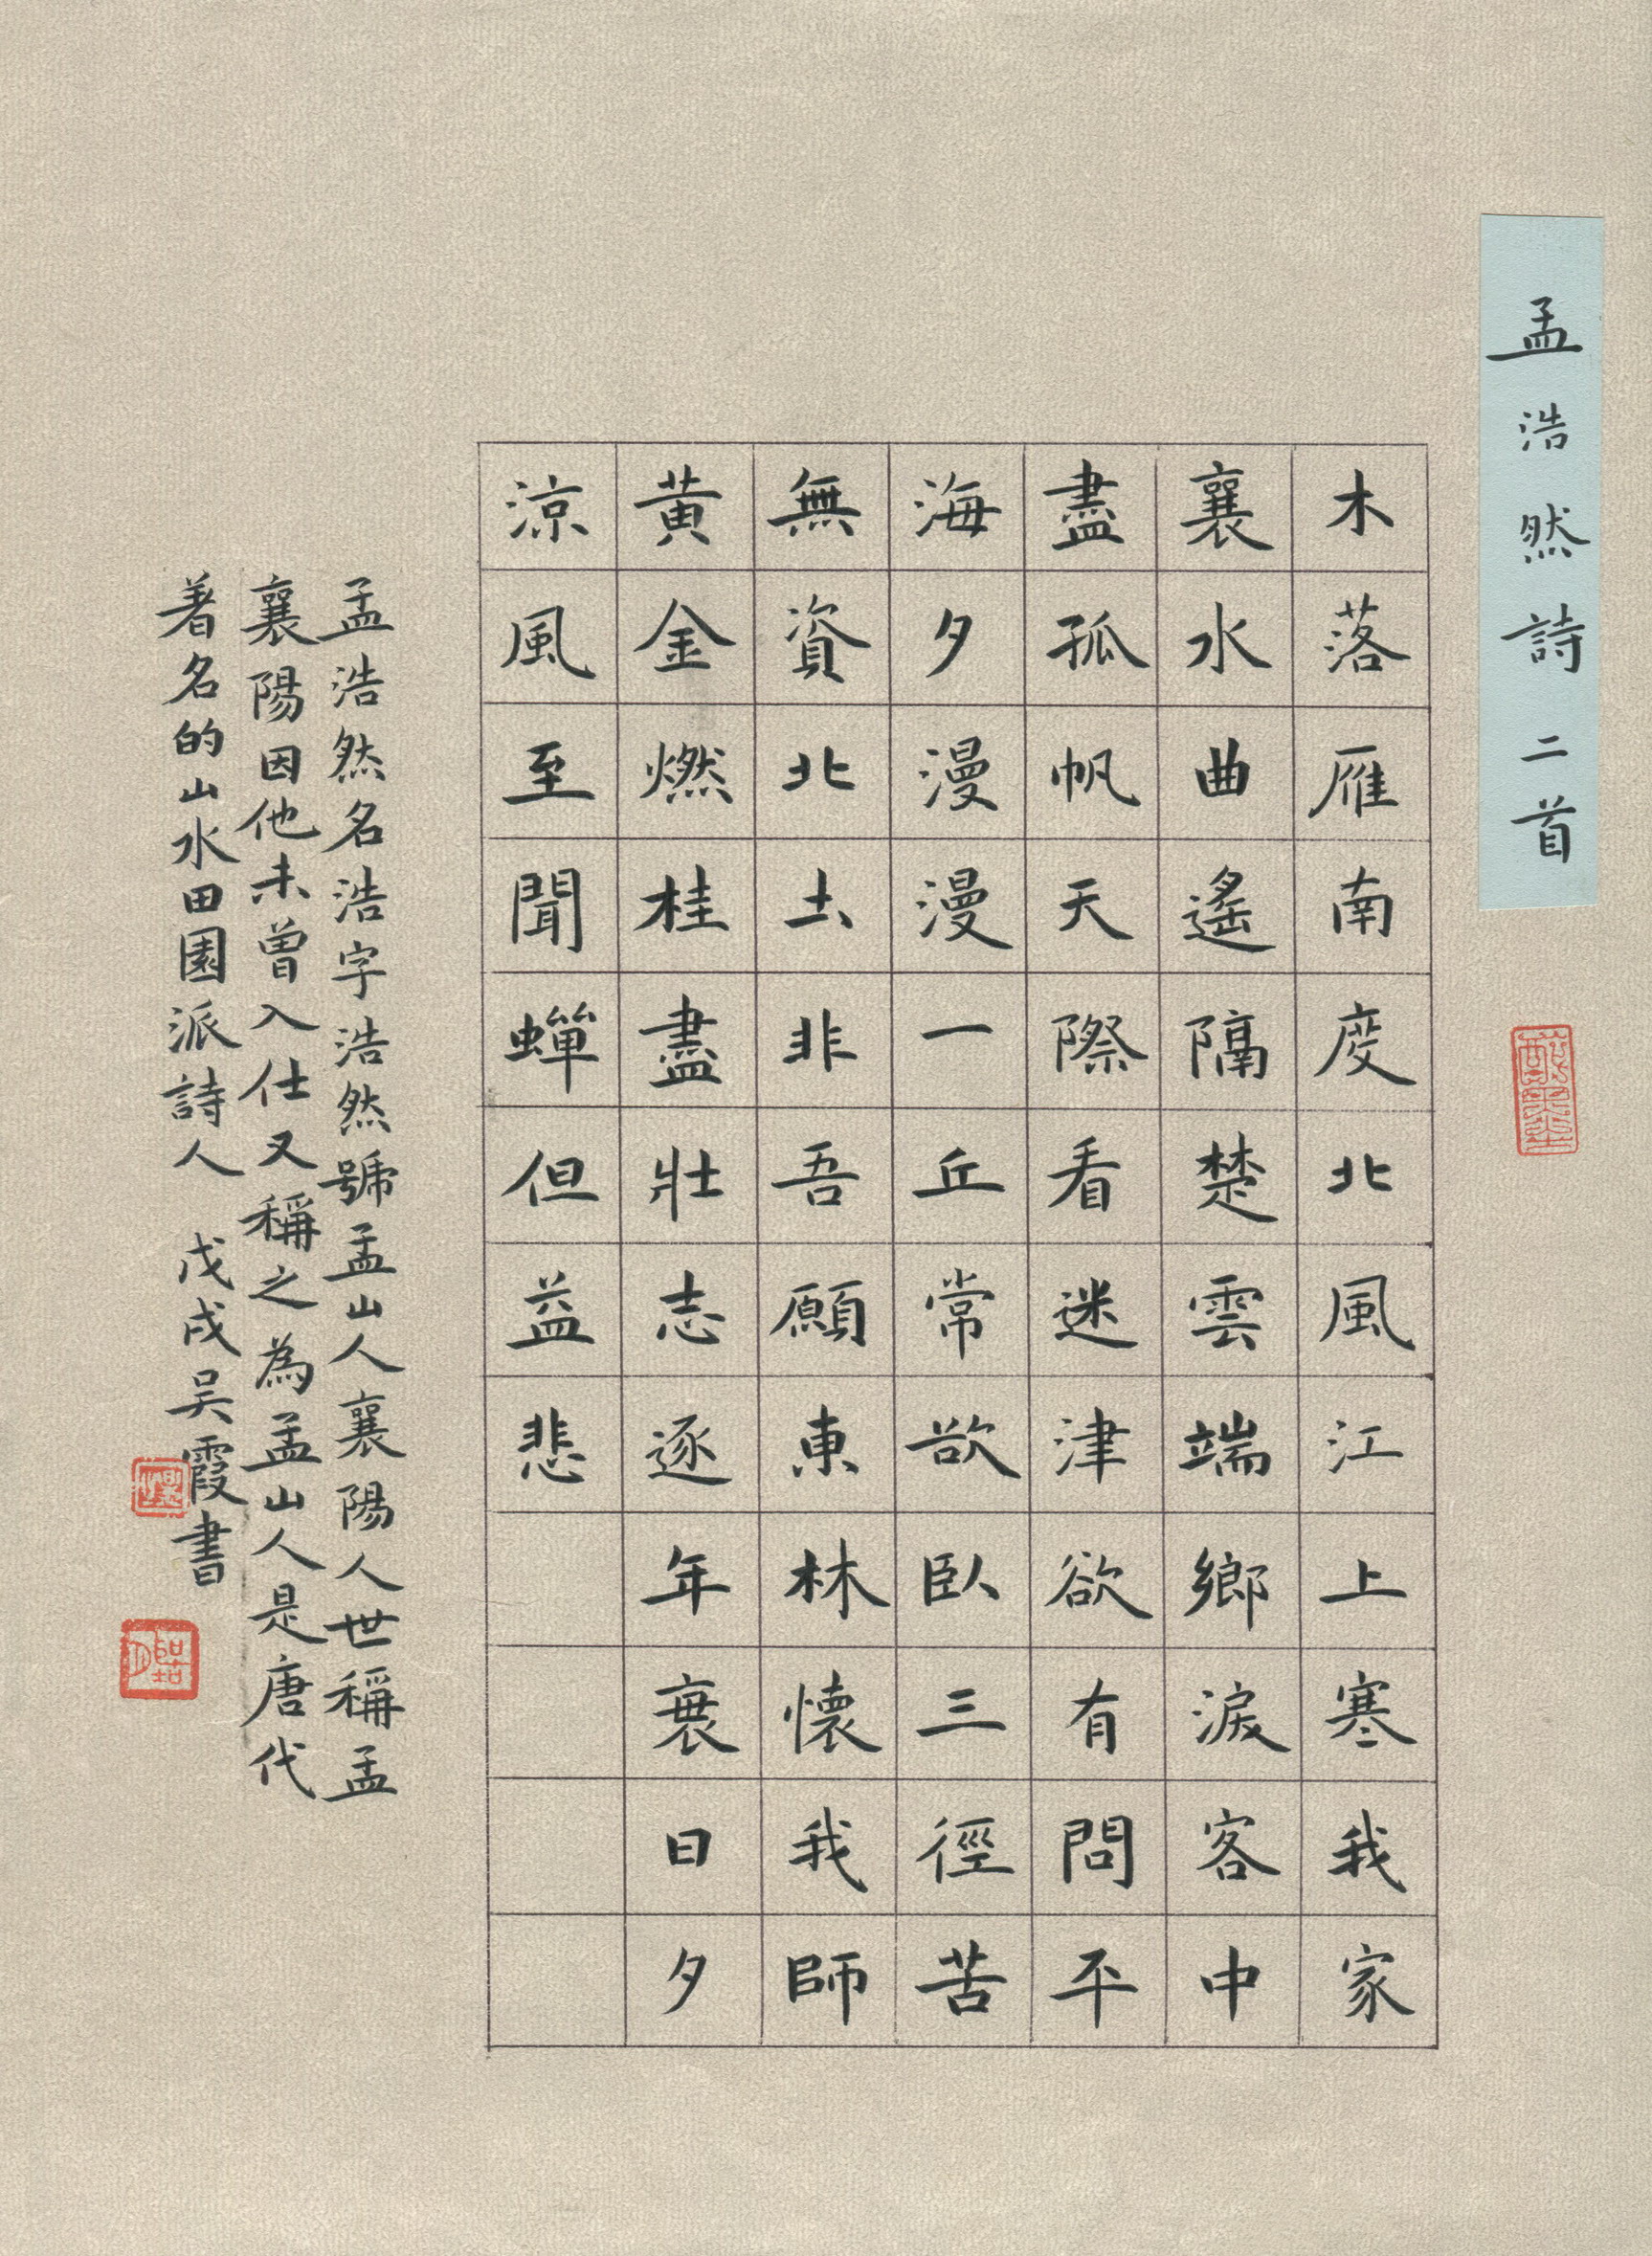 孟浩然詩二首
木落雁南度北風江上寒我家
襄水曲遙隔楚雲端鄉淚客中
盡孤帆天際看迷津欲有問平
海夕漫漫一丘常欲臥三徑苦
無資北土非吾願東林懷我師
黃金燃桂盡壯志逐年衰日夕
涼風至聞蟬但益悲
孟浩然名浩字浩然號孟山人襄陽人世稱孟
襄陽因他未曾入仕又稱之為孟山人是唐代
著名的山水田園派詩人 戊戌吴霞書